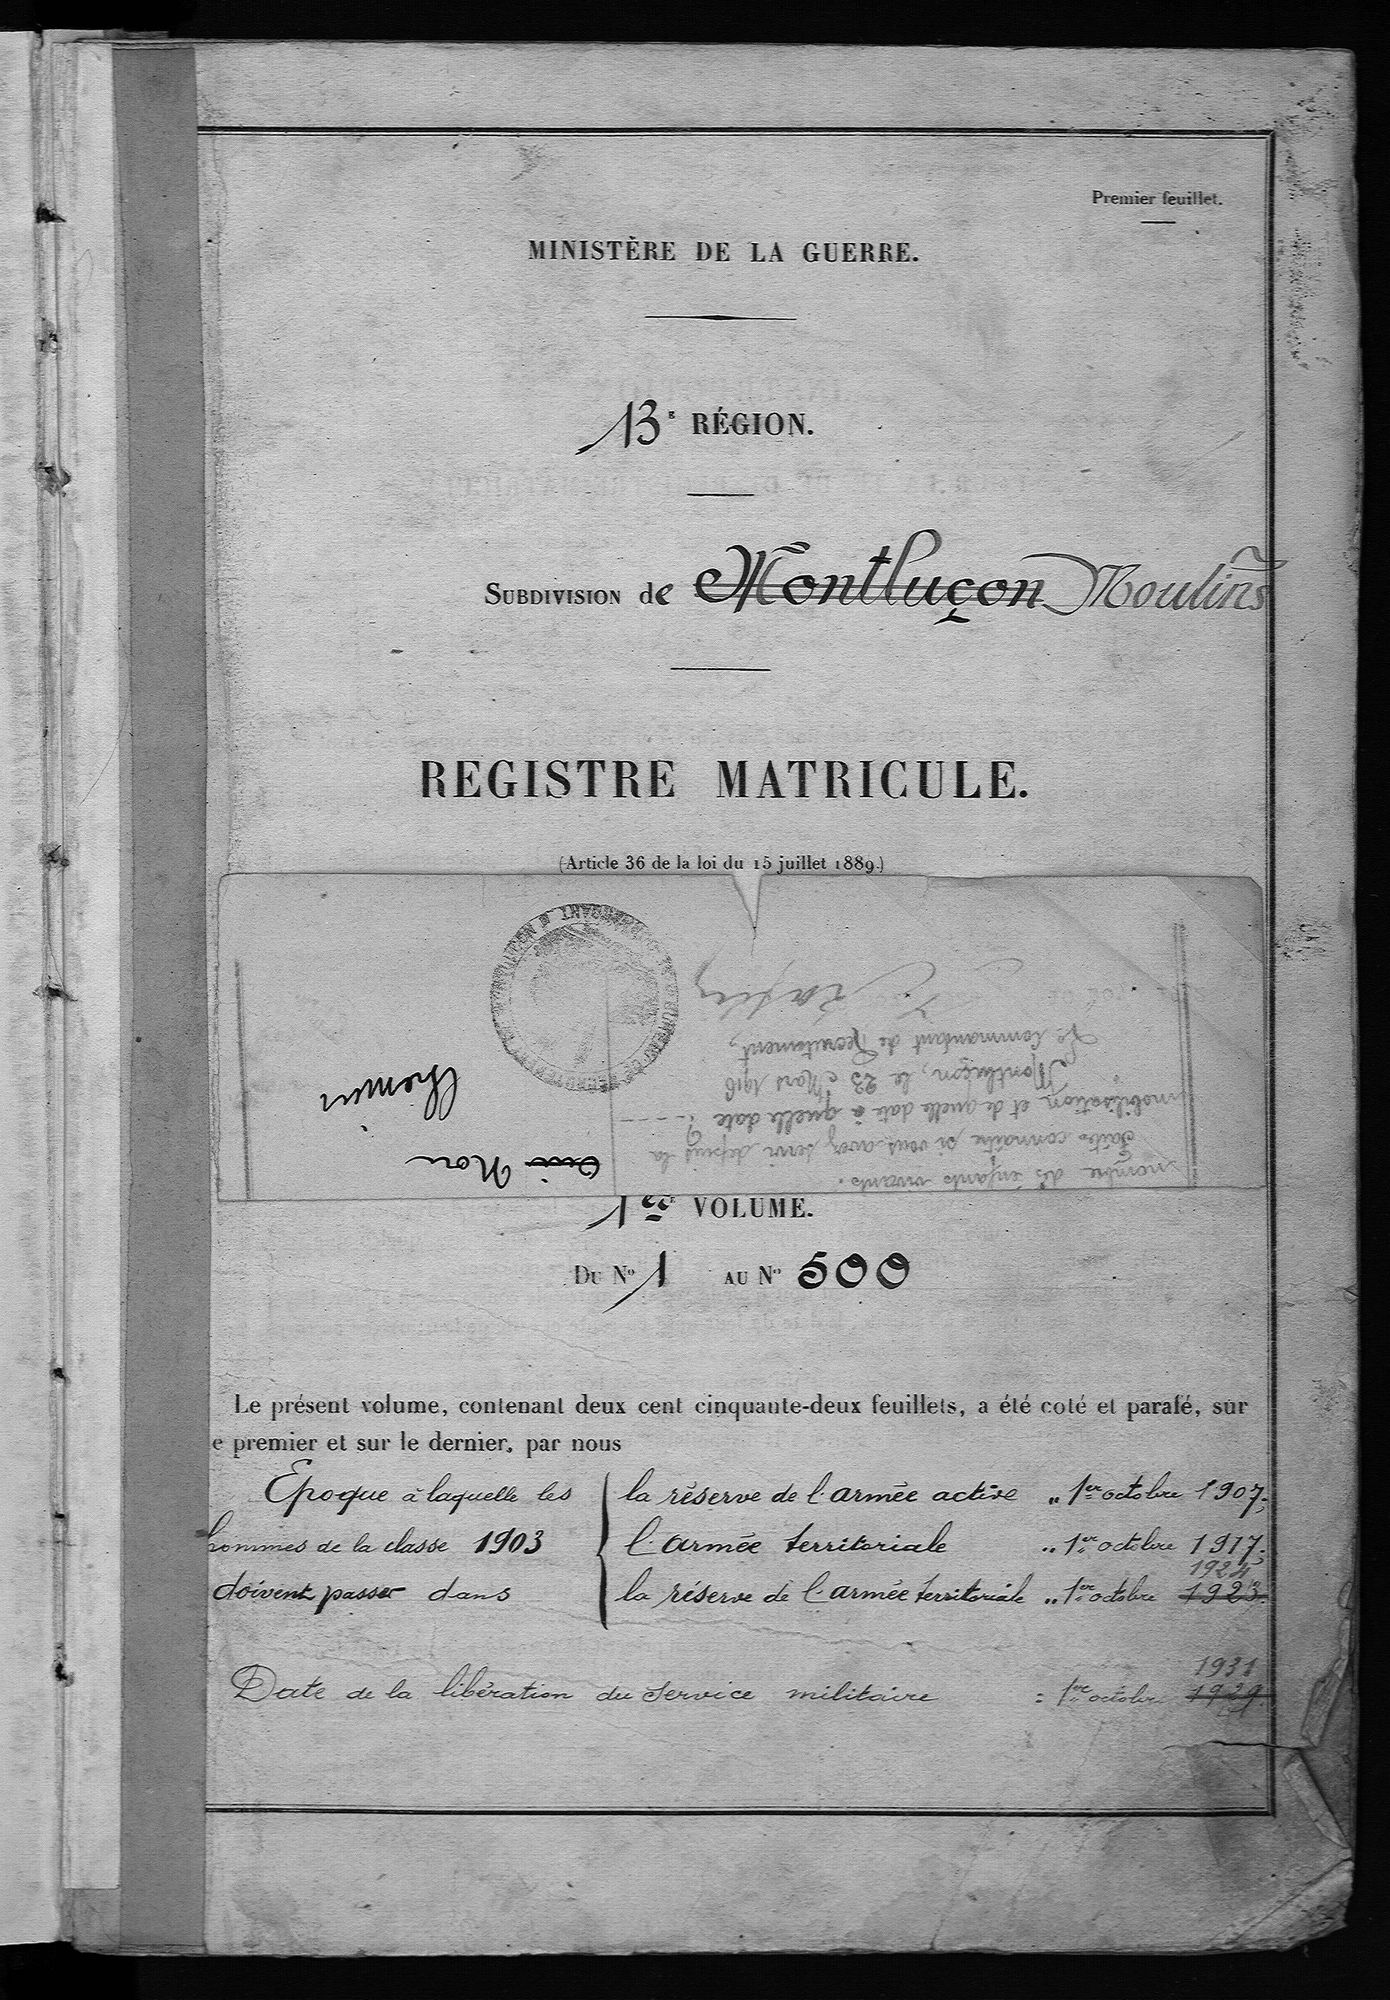 Premier feuillet.
MINISTÈRE DE LA GUERRE.
13e RÉGION.
SUBDIVISION de Montluçon Moulins
REGISTRE MATRICULE.
(Article 36 de la loi du 15 juillet 1889.)
nombre des enfants vivants.
Faites connaître si vous avez servi depuis la
mobilisation et de quelle date à quelle date ?
Montluçon, le 23 Mars 1916
Le Commandant de Recrutement,
Oui Non
1er VOLUME.
DU No 1 AU No 500
Le présent volume, contenant deux cent cinquante-deux feuillets, a été coté et parafé, sur
e premier et sur le dernier, par nous
Epoque à laquelle les { la réserve de l'armée active „ 1er octobre 1907;
hommes de la classe 1903 { l'armée territoriale „ 1er octobre 1917;
1924
doivent passer dans { la réserve de l'armée territoriale „ 1er octobre 1923.
1931
Date de la libération du service militaire = 1er octobre 1929.